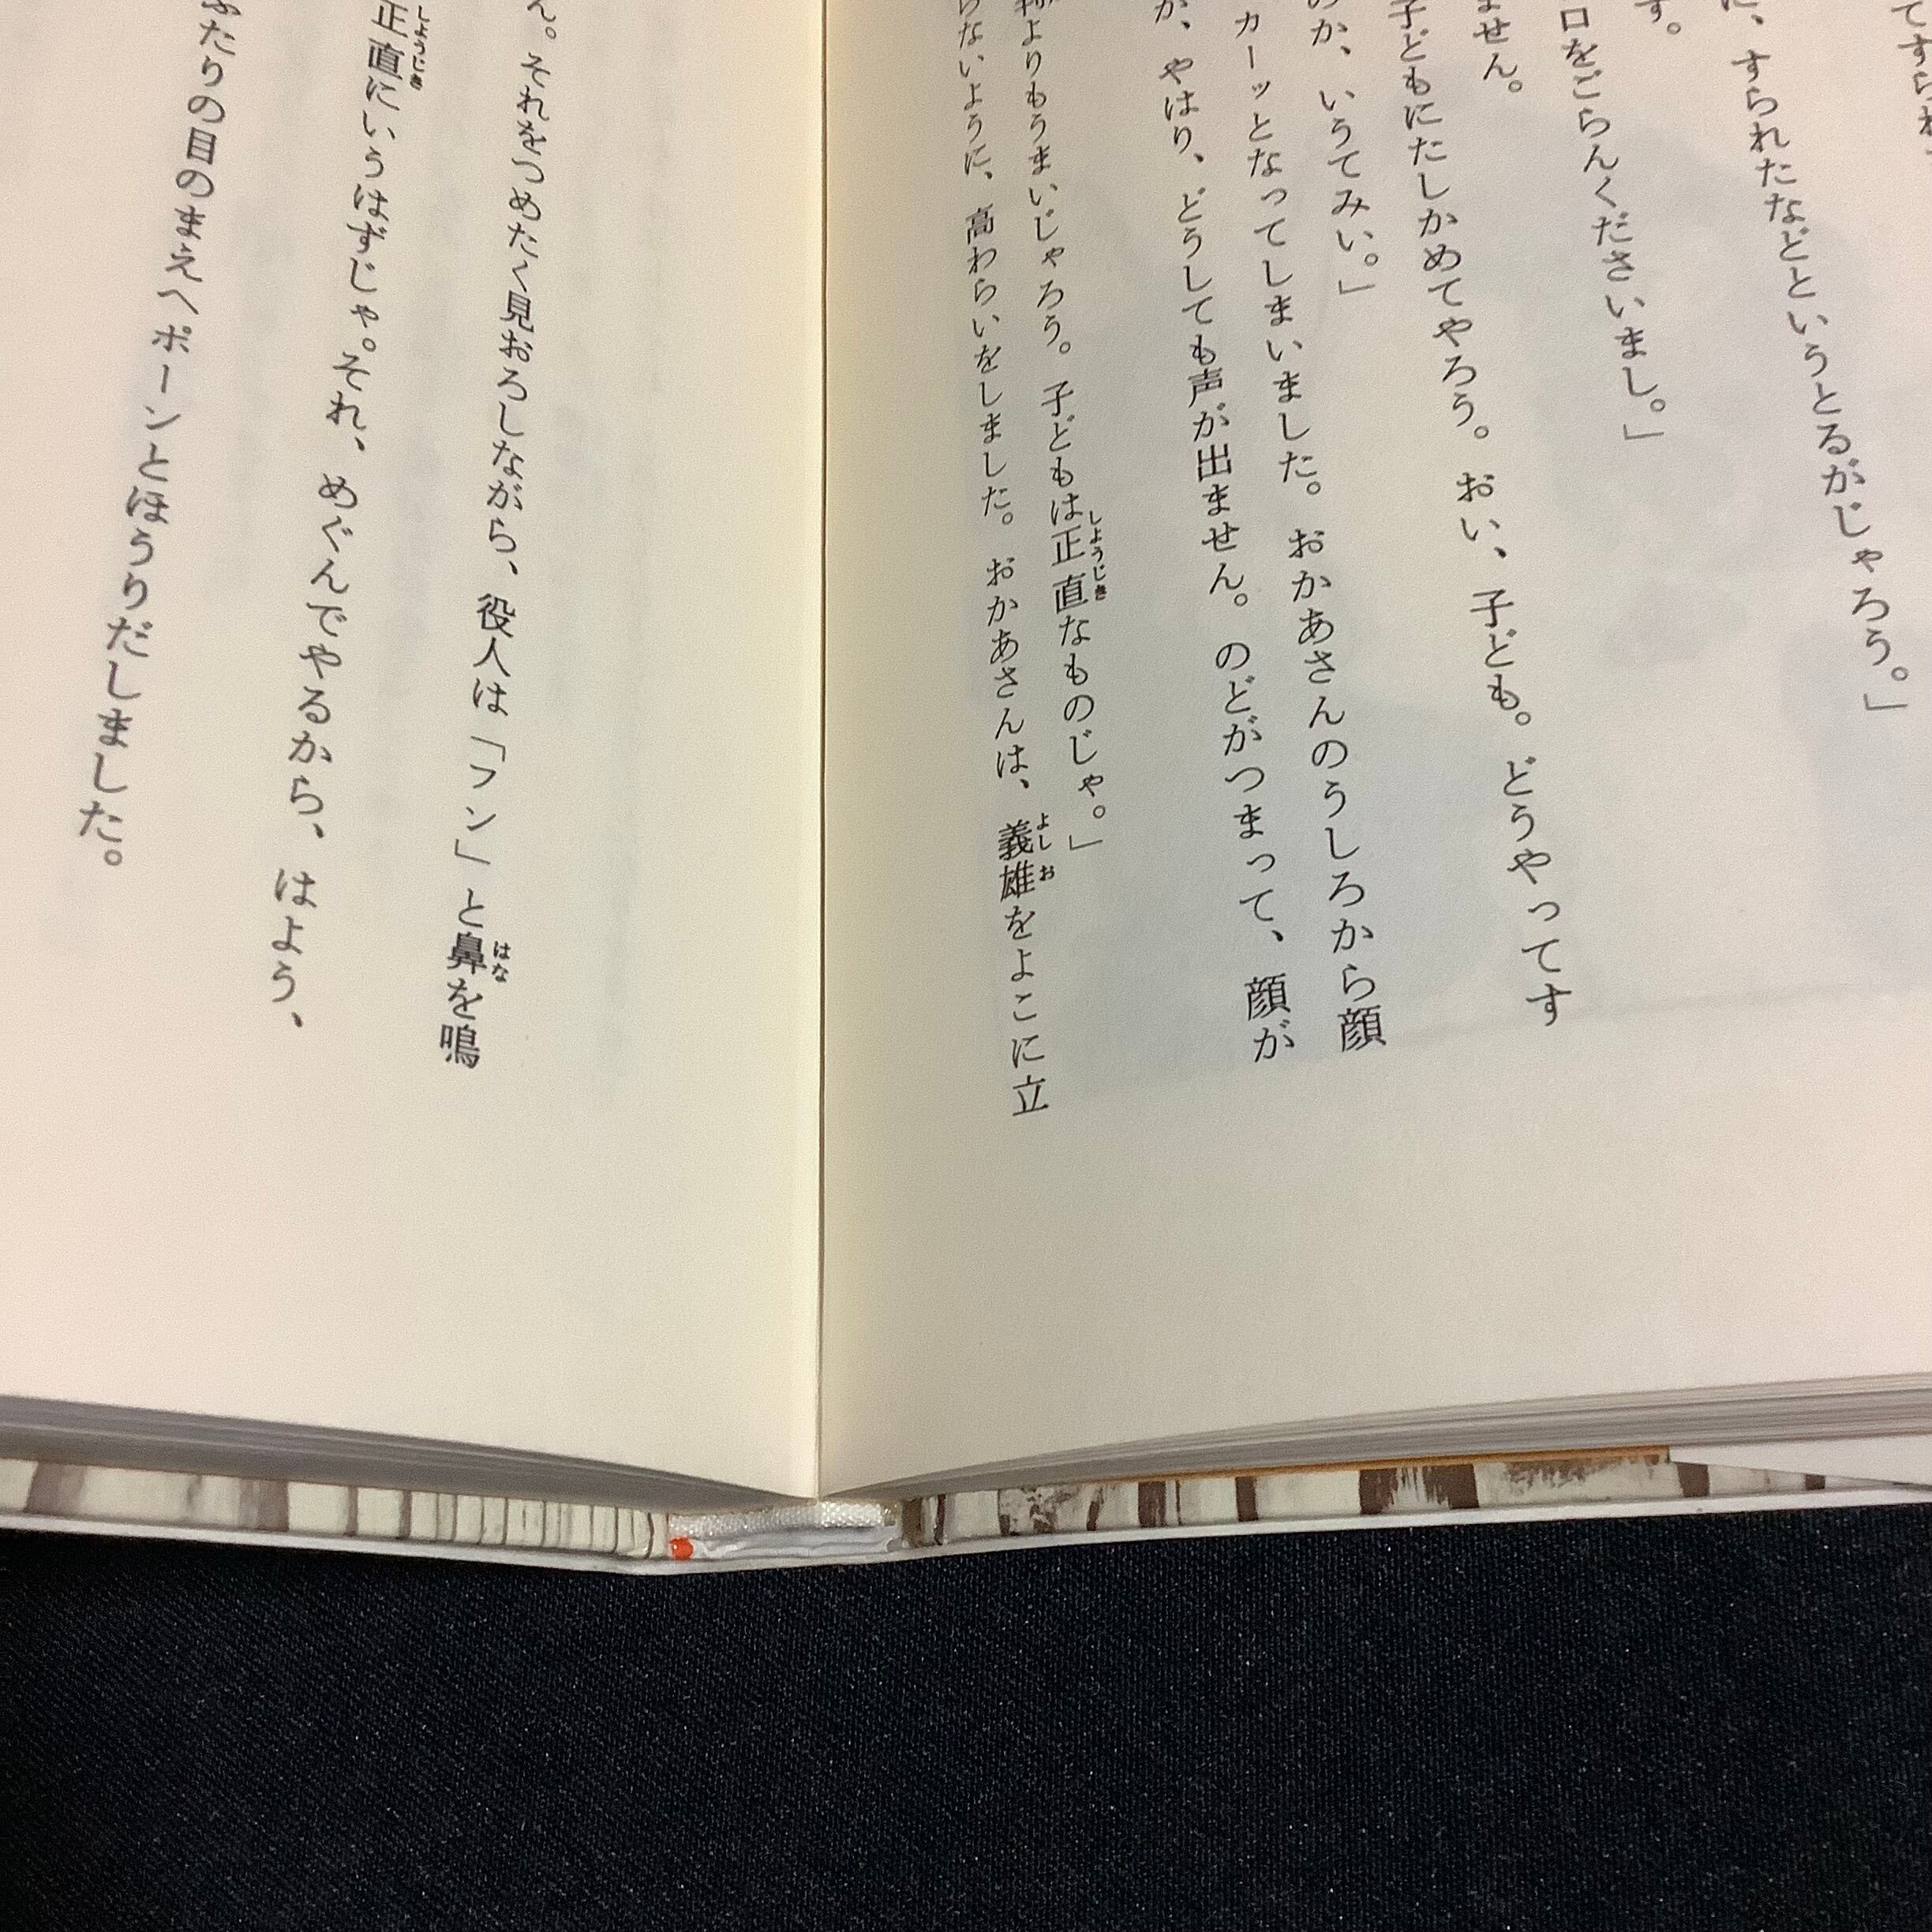 てすられ
に、すられたなどというとるがじゃろう。」
す。
口をごらんくださいまし。」
ません。
子どもにたしかめてやろう。おい、子ども。どうやってす
のか、いうてみい。」
カーッとなってしまいました。おかあさんのうしろから顔
が、やはり、どうしても声が出ません。のどがつまって、顔が
よりもうまいじゃろう。子どもは正直なものじゃ。」
らないように、高わらいをしました。おかあさんは、義雄をよこに立
ん。それをつめたく見おろしながら、役人は「フン」と鼻を鳴
正直にいうはずじゃ。それ、めぐんでやるから、はよう、
ふたりの目のまえへポーンとほうりだしました。